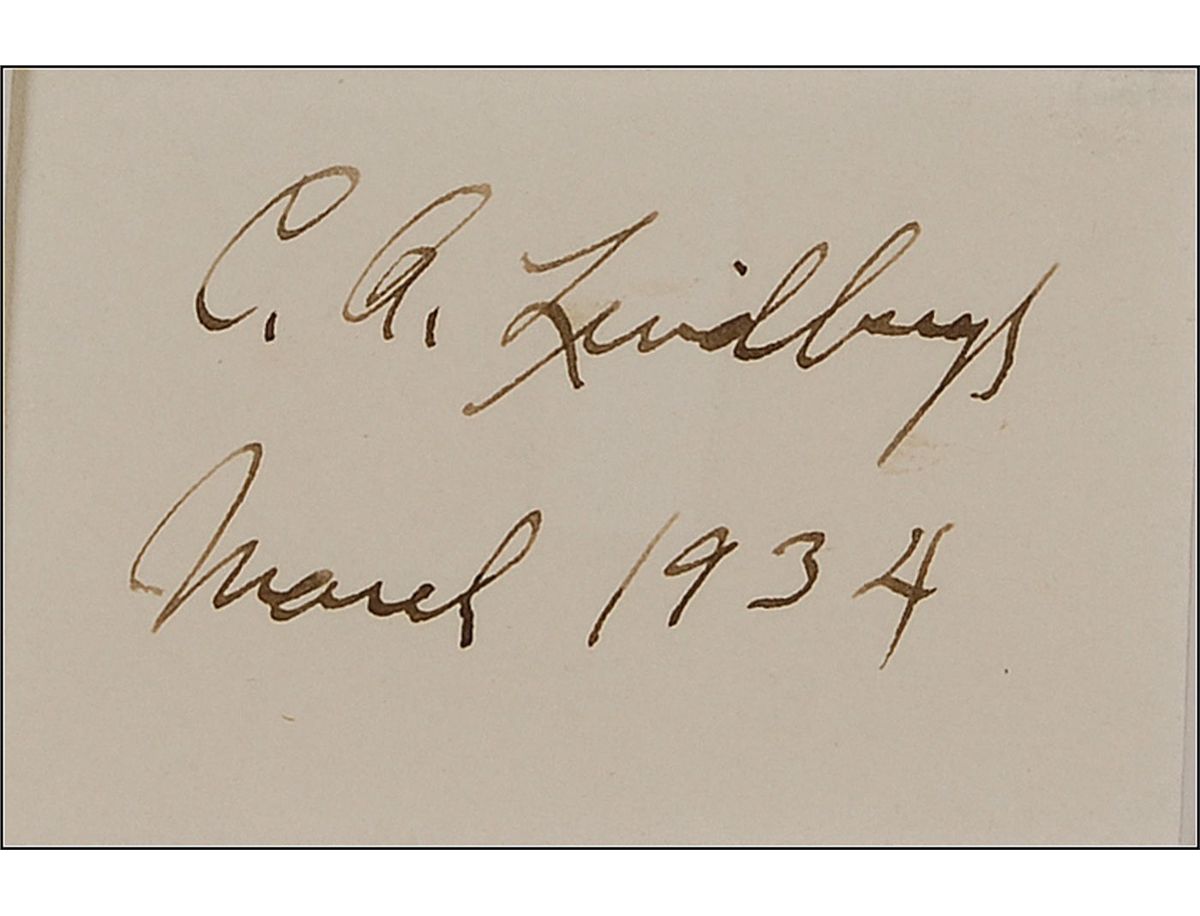 C. A. Lindbergh
March 1934